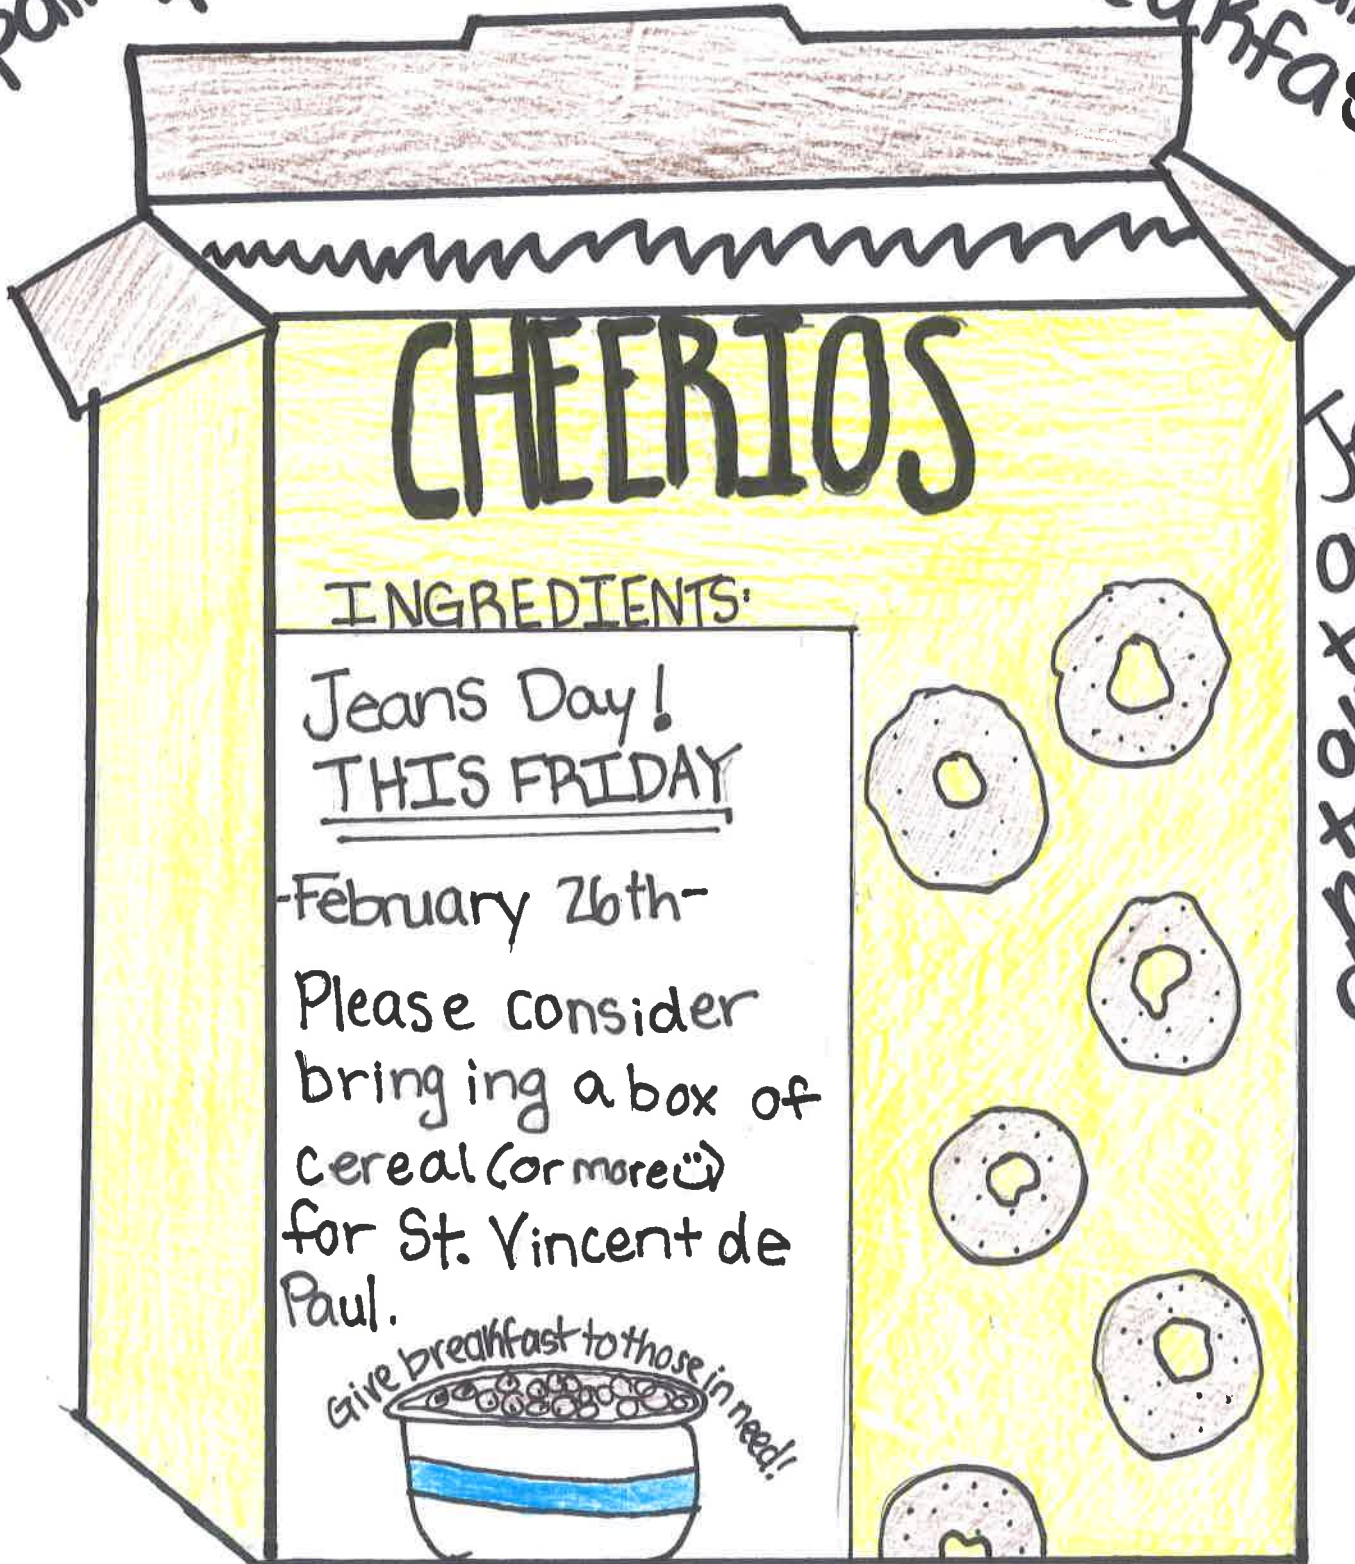 CHEERIOS
INGREDIENTS:
Jeans Day!
THIS FRIDAY
-February 26th-
Please consider
bringing a box of
cereal (or more☺)
for St. Vincent de
Paul.
Give breakfast to those in need!